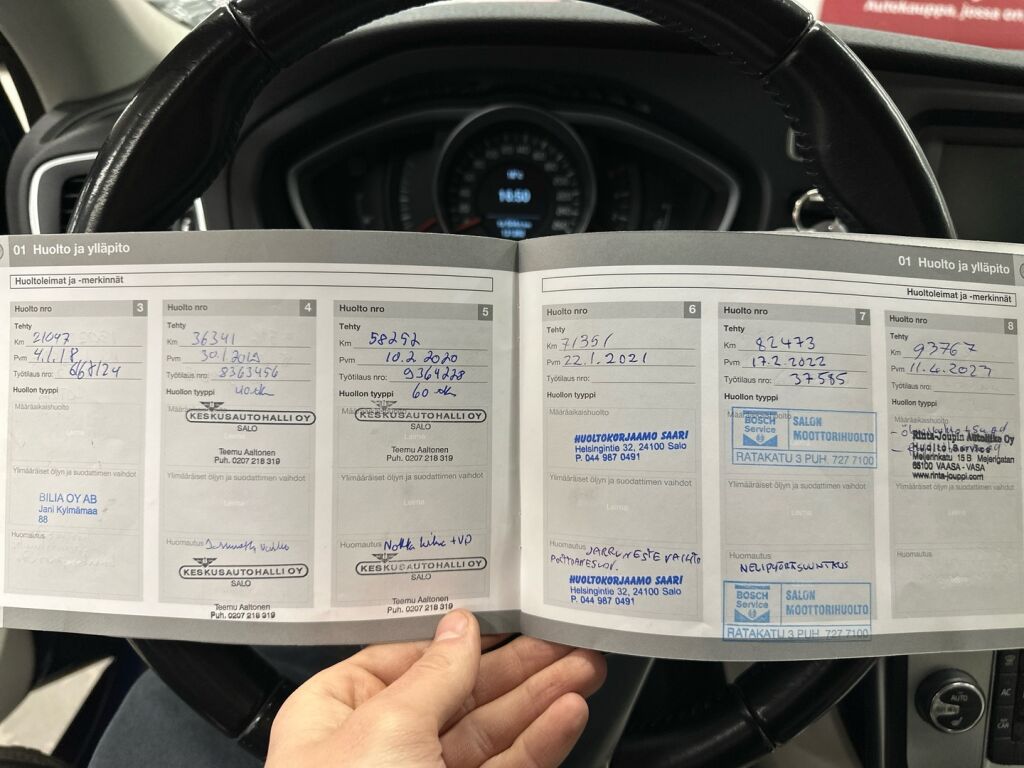 Autokauppa, jossa on
16:50
01 Huolto ja ylläpito
Huoltoleimat ja -merkinnät
Huolto nro 3
Tehty
Km 21047
Pvm 4.1.18
Työtilaus nro: 668124
Huollon tyyppi
Määräaikaishuolto
Ylimääräiset öljyn ja suodattimen vaihdot
BILIA OY AB
Jani Kylmämaa
88
Huomautus
Huolto nro 4
Tehty
Km 36341
Pvm 30.1.2019
Työtilaus nro: 8363456
Huollon tyyppi
KESKUSAUTOHALLI OY
SALO
Teemu Aaltonen
Puh. 0207 218 319
Ylimääräiset öljyn ja suodattimen vaihdot
Leima
Huomautus
KESKUSAUTOHALLI OY
SALO
Teemu Aaltonen
Puh. 0207 218 319
Huolto nro 5
Tehty
Km 58292
Pvm 10.2.2020
Työtilaus nro: 9364228
Huollon tyyppi 60
KESKUSAUTOHALLI OY
SALO
Leima
Teemu Aaltonen
Puh. 0207 218 319
Ylimääräiset öljyn ja suodattimen vaihdot
Leima
Huomautus
KESKUSAUTOHALLI OY
SALO
Teemu Aaltonen
Puh. 0207 218 319
01 Huolto ja ylläpito
Huoltoleimat ja -merkinnät
Huolto nro 6
Tehty
Km 71351
Pvm 22.1.2021
Työtilaus nro:
Huollon tyyppi
Määräaikaishuolto
HUOLTOKORJAAMO SAARI
Helsingintie 32, 24100 Salo
P. 044 987 0491
Ylimääräiset öljyn ja suodattimen vaihdot
Leima
Huomautus JARRUNESTE VAIHTO
HUOLTOKORJAAMO SAARI
Helsingintie 32, 24100 Salo
P. 044 987 0491
Huolto nro 7
Tehty
Km 82473
Pvm 17.2.2022
Työtilaus nro: 37585
Huollon tyyppi
Määräaikaishuolto
BOSCH Service SALON MOOTTORIHUOLTO
RATAKATU 3 PUH. 727 7100
Ylimääräiset öljyn ja suodattimen vaihdot
Leima
Huomautus
NELIPYÖRÄSUUNTAUS
BOSCH Service SALON MOOTTORIHUOLTO
RATAKATU 3 PUH. 727 7100
Huolto nro 8
Tehty
Km 93767
Pvm 11.4.2023
Työtilaus nro:
Huollon tyyppi
Määräaikaishuolto
Rinta-Joupin Autoliike Oy
Huolto/Service
Meijerinkatu 15 B Meijerigatan
65100 VAASA - VASA
www.rinta-jouppi.com
Ylimääräiset öljyn ja suodattimen vaihdot
Huomautus
AUTO
AC
CAR